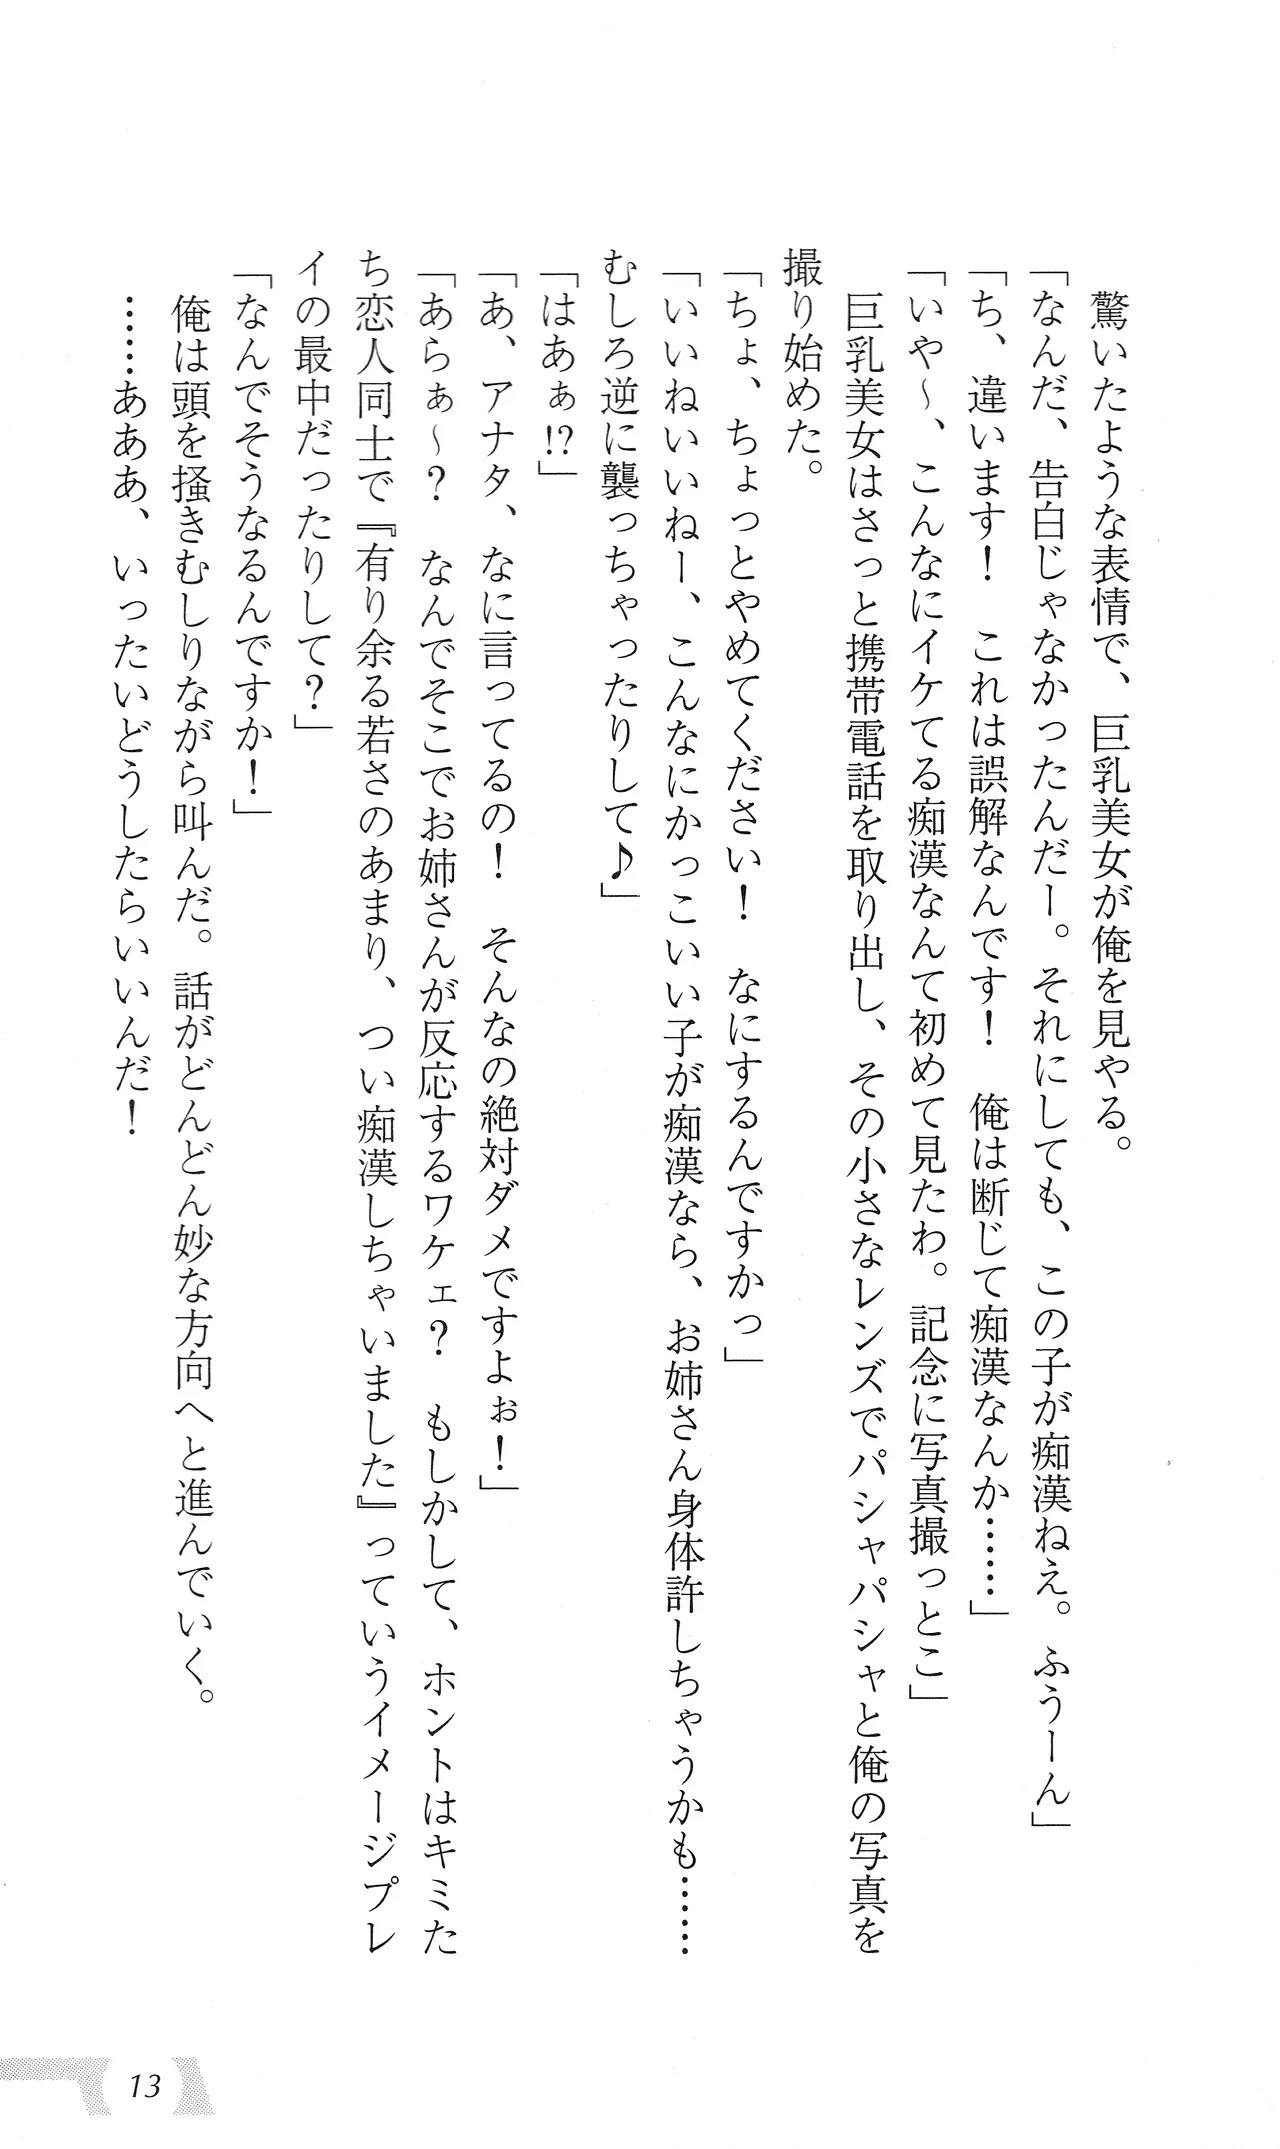 驚いたような表情で、巨乳美女が俺を見やる。
「なんだ、告白じゃなかったんだー。それにしても、この子が痴漢ねえ。ふうーん」
「ち、違います！　これは誤解なんです！　俺は断じて痴漢なんか……」
「いや～、こんなにイケてる痴漢なんて初めて見たわ。記念に写真撮っとこ」
　巨乳美女はさっと携帯電話を取り出し、その小さなレンズでパシャパシャと俺の写真を
撮り始めた。
「ちょ、ちょっとやめてください！　なにするんですかっ」
「いいねいいねー、こんなにかっこいい子が痴漢なら、お姉さん身体許しちゃうかも……
むしろ逆に襲っちゃったりして♪」
「はあぁ!?」
「あ、アナタ、なに言ってるの！　そんなの絶対ダメですよぉ！」
「あらぁ～？　なんでそこでお姉さんが反応するワケェ？　もしかして、ホントはキミた
ち恋人同士で『有り余る若さのあまり、つい痴漢しちゃいました』っていうイメージプレ
イの最中だったりして？」
「なんでそうなるんですか！」
　俺は頭を掻きむしりながら叫んだ。話がどんどん妙な方向へと進んでいく。
　……あああ、いったいどうしたらいいんだ！
13